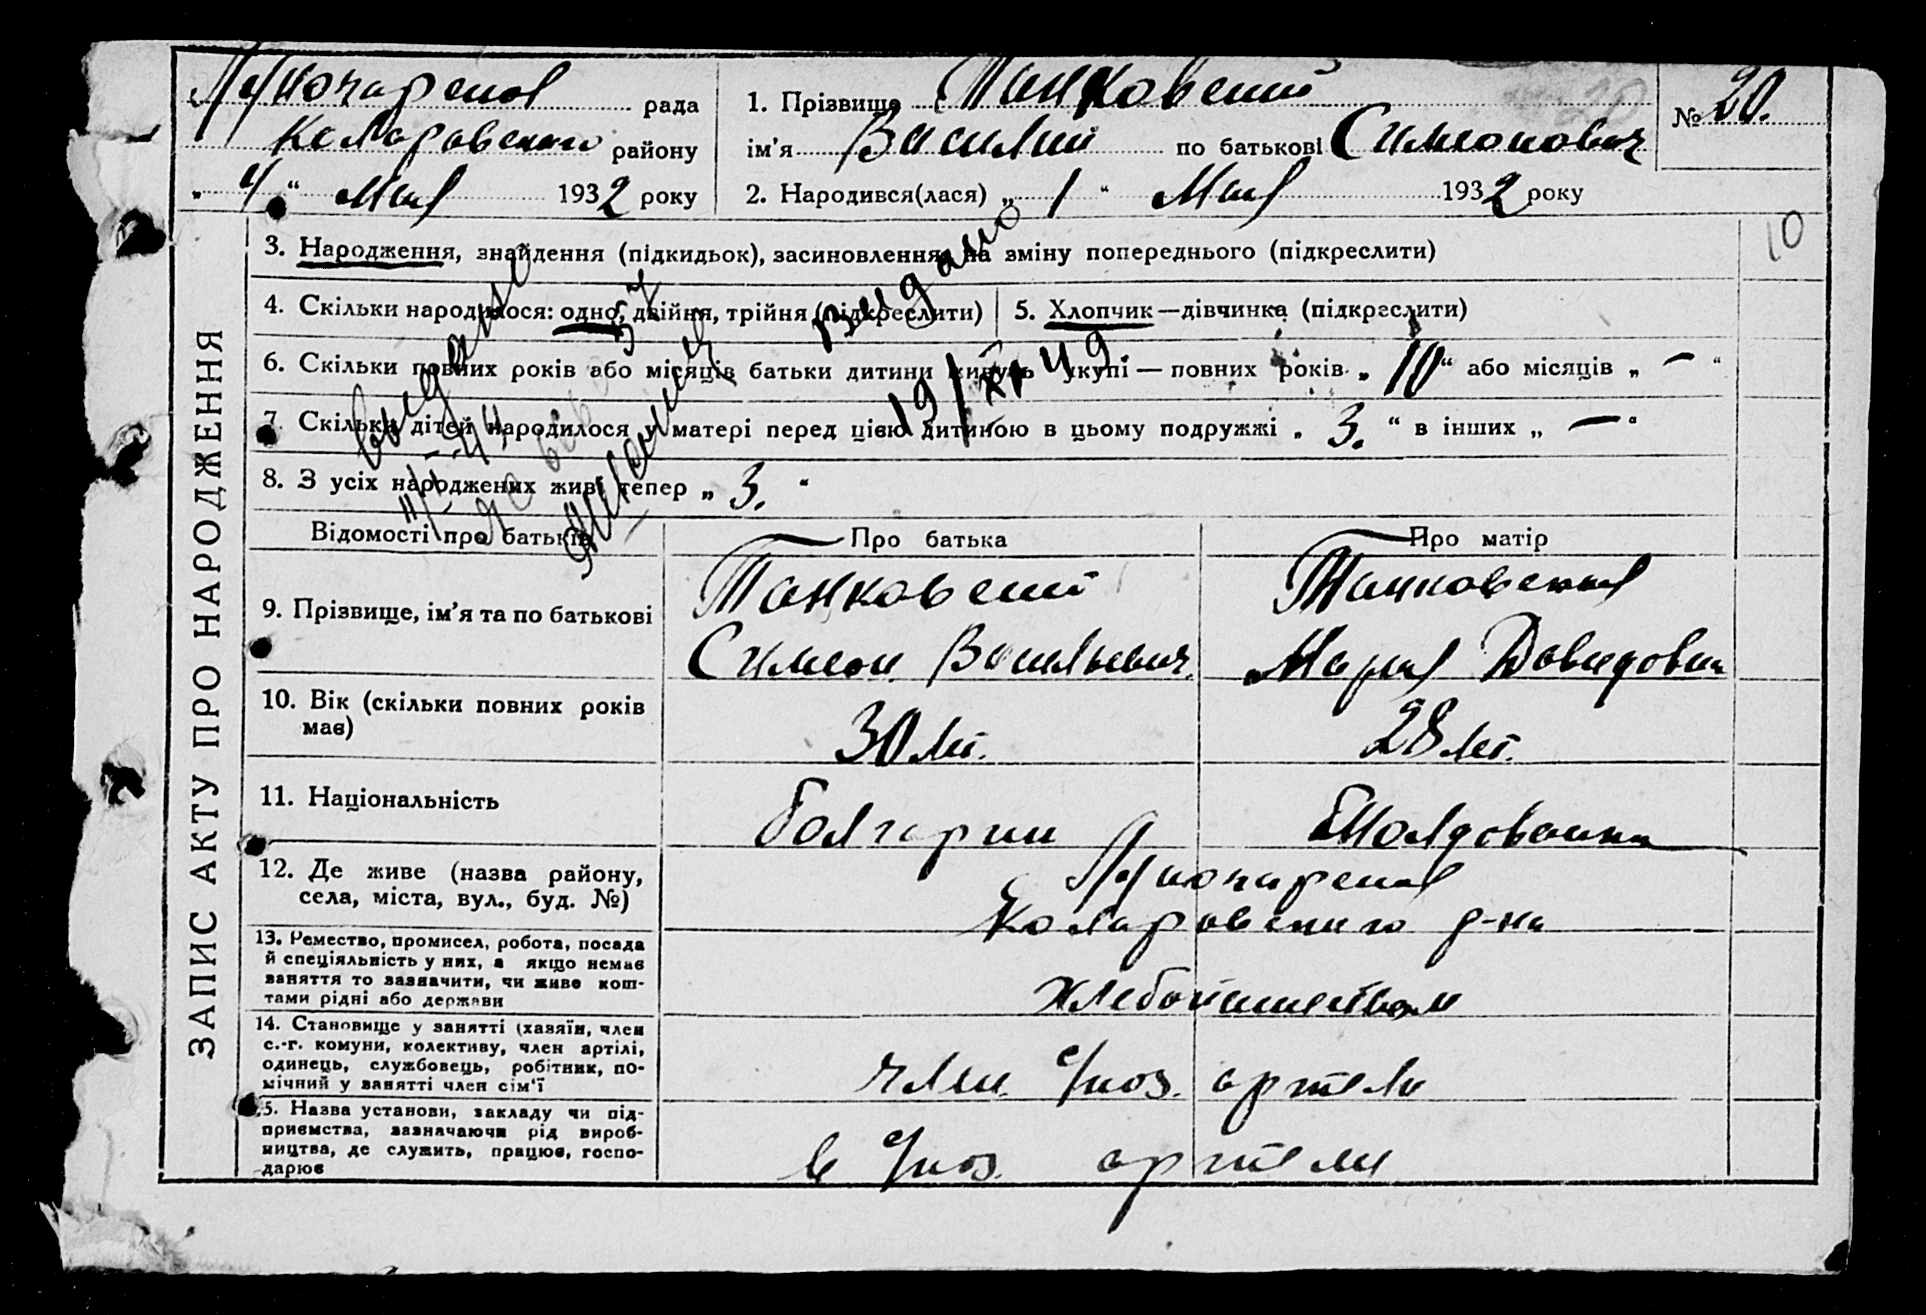 Луначарская рада
Коларовского району
„4" Мая 1932 року
1. Прізвище Танковский
ім'я Василий по батькові Симеонович
2. Народився(лася) „1" Мая 1932 року
№ 20.
10
ЗАПИС АКТУ ПРО НАРОДЖЕННЯ
3. Народження, знайдення (підкидьок), засиновлення, на зміну попереднього (підкреслити)
4. Скільки народилося: одно, двійня, трійня (підкреслити)
5. Хлопчик—дівчинка (підкреслити)
6. Скільки повних років або місяців батьки дитини живуть укупі — повних років „10" або місяців „—"
7. Скільки дітей народилося у матері перед цією дитиною в цьому подружжі „3." в інших „—"
8. З усіх народжених живі тепер „3."
выдано
видано
19/XI 49
Відомості про батьків
Про батька
Про матір
9. Прізвище, ім'я та по батькові
Танковский
Симеон Васильевич
Танковская
Мария Давидовна
10. Вік (скільки повних років
має)
30 лет.
28 лет.
11. Національність
болгарин
Молдованка
12. Де живе (назва району,
села, міста, вул., буд. №)
Луначарская
Коларовского р-на
13. Ремество, промисел, робота, посада
й спеціяльність у них, а якщо немає
заняття то зазначити, чи живе кош-
тами рідні або держави
Хлебопашеством
14. Становище у занятті (хазяїн, член
с.-г. комуни, колективу, член артілі,
одинець, службовець, робітник, по-
мічний у занятті член сім'ї
член с/хоз. артели
15. Назва установи, закладу чи під-
приємства, зазначаючи рід вироб-
ництва, де служить, працює, госпо-
дарює
в с/хоз. артели